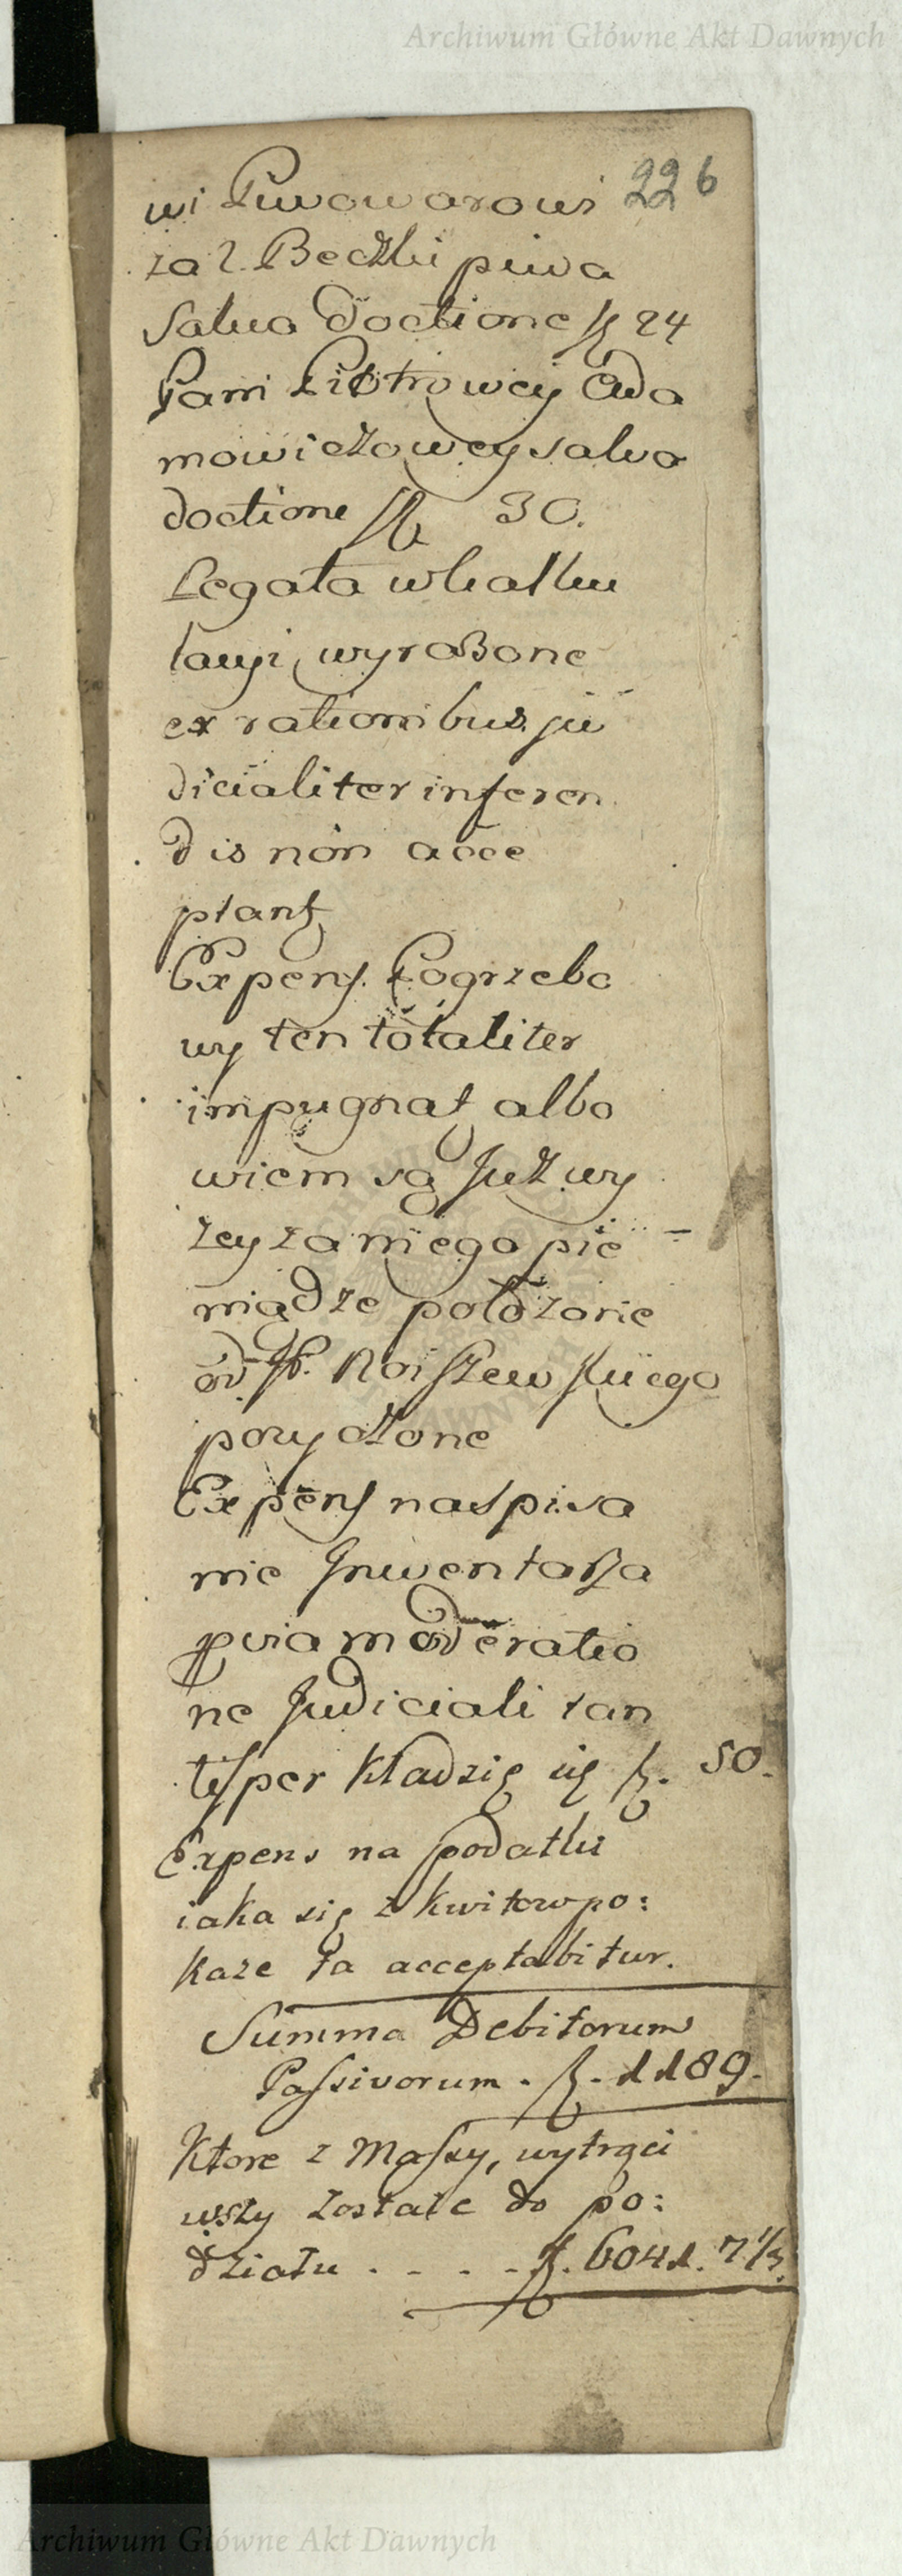 Archiwum Główne Akt Dawnych
226
wi Piwowarowi
za 2. Beczki piwa
Salva doctione fl 24
Pani Piotrowey Ada
mowiczowey salva
doctione fl 30.
Legata w kastku
tanyi wyrażone
ex rationibus ju
dicialiter inferen
dis non acce
ptant
Expens Pogrzebo
wy ten totaliter
impugnat albo
wiem są Już wy
zey za niego pie
niądze położone
od JP. Roiszewskiego
pozyczone
Expens na spisa
nie Inwentarza
pvia moderatio
ne Judiciali tan
tisper kładzię się fl. 50.
Expens na podatki
iaka się z kwitow po:
każe ta acceptabitur.
Summa Debitorum
Passivorum. fl. 1189.
Ktore z Massy, wytrąci
wszy zostaie do po:
działu . - . - fl. 6041. 7 1/3.
Archiwum Główne Akt Dawnych